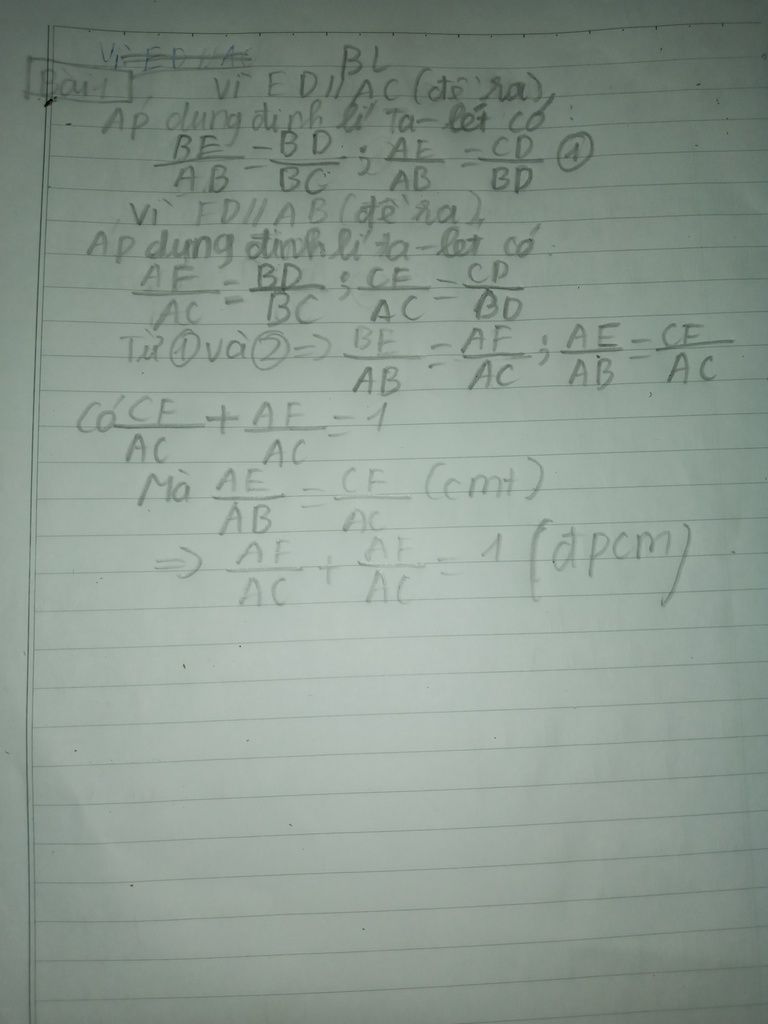 Vì ED // AC
BL
Bài 1 Vì ED // AC (đề ra),
Áp dụng định lí Ta-lét có:
BE/AB = BD/BC ; AE/AB = CD/BD ①
Vì FD // AB (đề ra),
Áp dụng định lí ta-lét có:
AF/AC = BD/BC ; CF/AC = CD/BD
Từ ① và ② => BE/AB = AF/AC ; AE/AB = CF/AC
Có CF/AC + AF/AC = 1
Mà AE/AB = CF/AC (cmt)
=> AF/AC + AF/AC = 1 (đpcm)